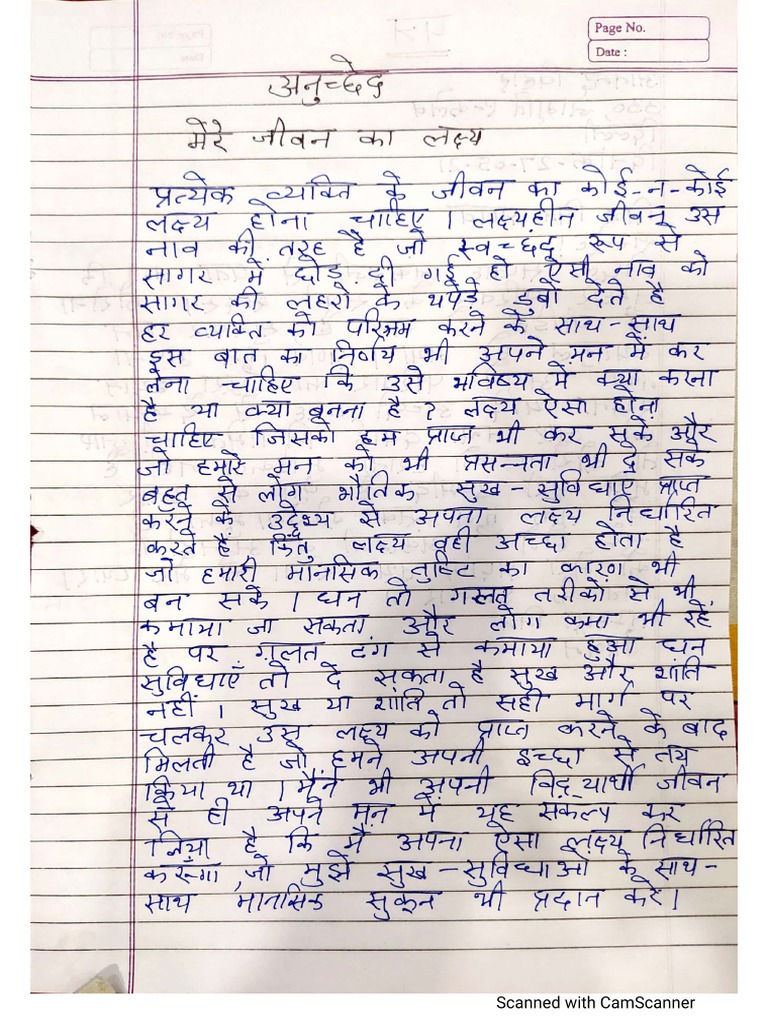 Page No.
Date :
अनुच्छेद
मेरे जीवन का लक्ष्य
प्रत्येक व्यक्ति के जीवन का कोई-न-कोई
लक्ष्य होना चाहिए । लक्ष्यहीन जीवन उस
नाव की तरह है जो स्वच्छंद रूप से
सागर में छोड़ दी गई हो ऐसी नाव को
सागर की लहरो के थपेड़े डुबो देते है
हर व्यक्ति को परिश्रम करने के साथ-साथ
इस बात का निर्णय भी अपने मन में कर
लेना चाहिए कि उसे भविष्य में क्या करना
है या क्या बनना है? लक्ष्य ऐसा होना
चाहिए जिसको हम प्राप्त भी कर सकें और
जो हमारे मन को भी प्रसन्नता भी दे सके
बहुत से लोग भौतिक सुख-सुविधाएँ प्राप्त
करने के उद्देश्य से अपना लक्ष्य निर्धारित
करते हैं किंतु लक्ष्य वही अच्छा होता है
जो हमारी मानसिक तुष्टि का कारण भी
बन सके । धन तो गलत तरीकों से भी
कमाया जा सकता और लोग कमा भी रहे
है पर ग़लत ढंग से कमाया हुआ धन
सुविधाएँ तो दे सकता है सुख और शांति
नहीं । सुख या शांति तो सही मार्ग पर
चलकर उस लक्ष्य को प्राप्त करने के बाद
मिलती है जो हमने अपनी इच्छा से तय
किया था । मैंने भी अपनी विद्यार्थी जीवन
से ही अपने मन में यह संकल्प कर
लिया है कि मैं अपना ऐसा लक्ष्य निर्धारित
करूँगा ,जो मुझे सुख-सुविधाओं के साथ-
साथ मानसिक सुकून भी प्रदान करे।
Scanned with CamScanner